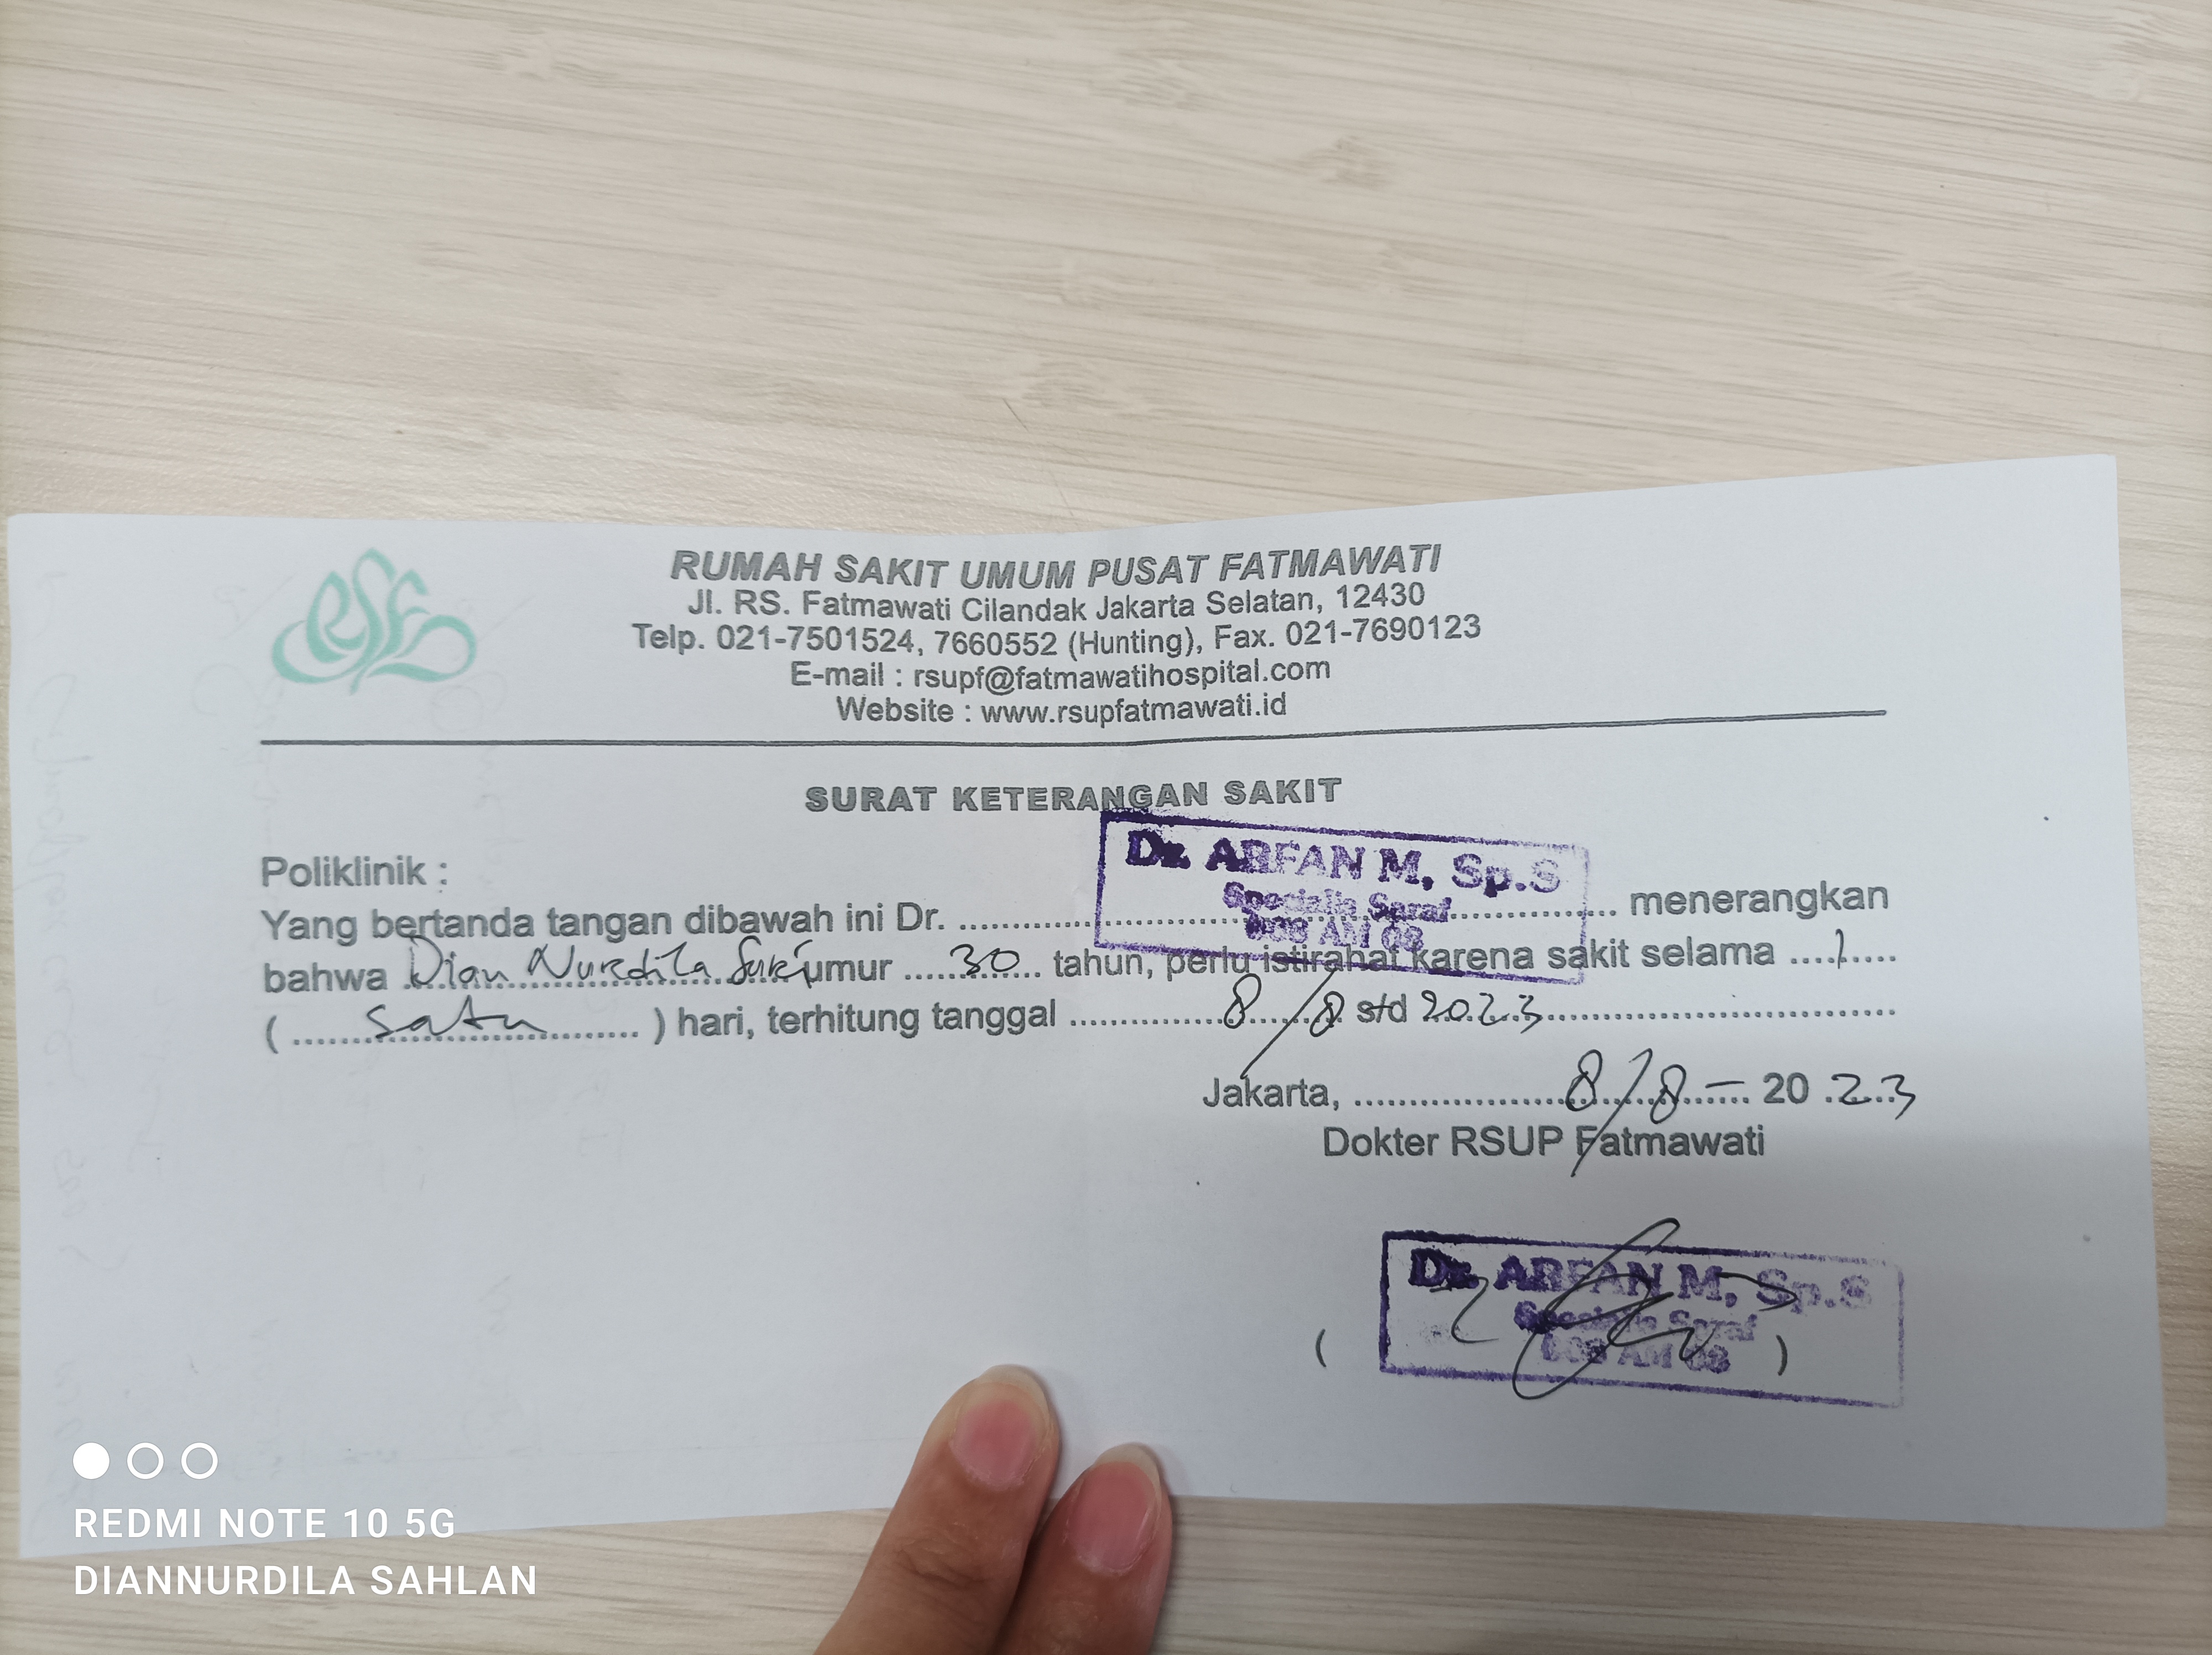 RUMAH SAKIT UMUM PUSAT FATMAWATI
Jl. RS. Fatmawati Cilandak Jakarta Selatan, 12430
Telp. 021-7501524, 7660552 (Hunting), Fax. 021-7690123
E-mail : rsupf@fatmawatihospital.com
Website : www.rsupfatmawati.id
SURAT KETERANGAN SAKIT
Poliklinik :
Dr. ARFAN M, Sp.S
Spesialis Saraf
Yang bertanda tangan dibawah ini Dr. ........ menerangkan
bahwa Dian Nurdila Sari umur 30 tahun, perlu istirahat karena sakit selama 1
( satu ) hari, terhitung tanggal 8/8 s/d 2023
Jakarta, 8/8 - 20 23
Dokter RSUP Fatmawati
Dr. ARFAN M, Sp.S
Spesialis Saraf
( )
REDMI NOTE 10 5G
DIANNURDILA SAHLAN